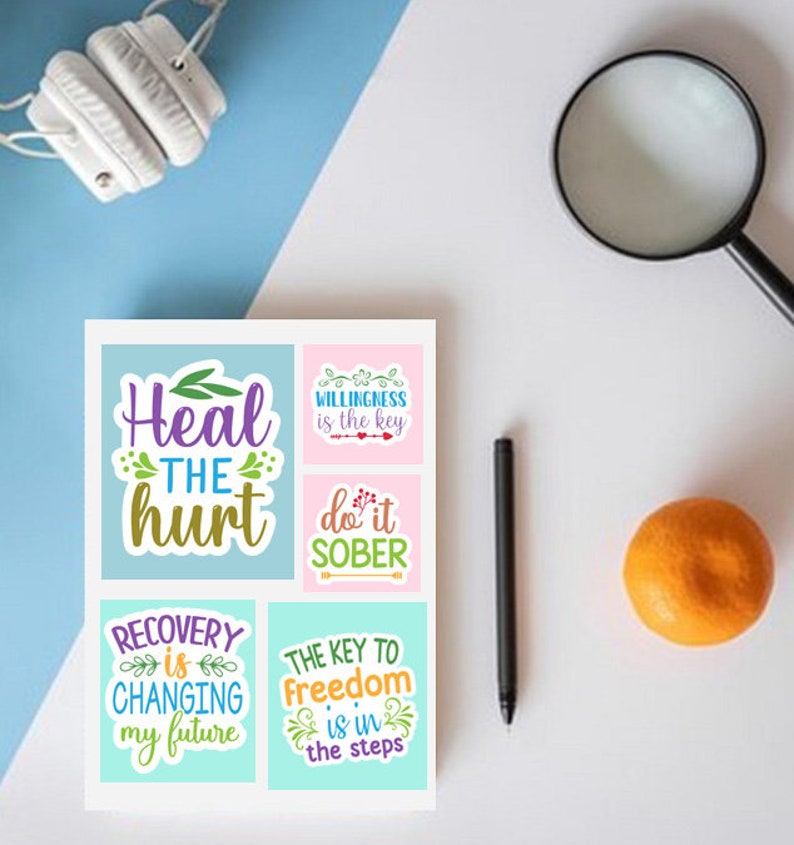 Heal
THE
hurt
WILLINGNESS
is the key
do it
SOBER
RECOVERY
is
CHANGING
my future
THE KEY TO
freedom
is in
the steps